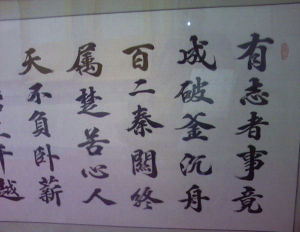 有志者事竟
成破釜沉舟
百二秦關终
属楚苦心人
天不负卧薪